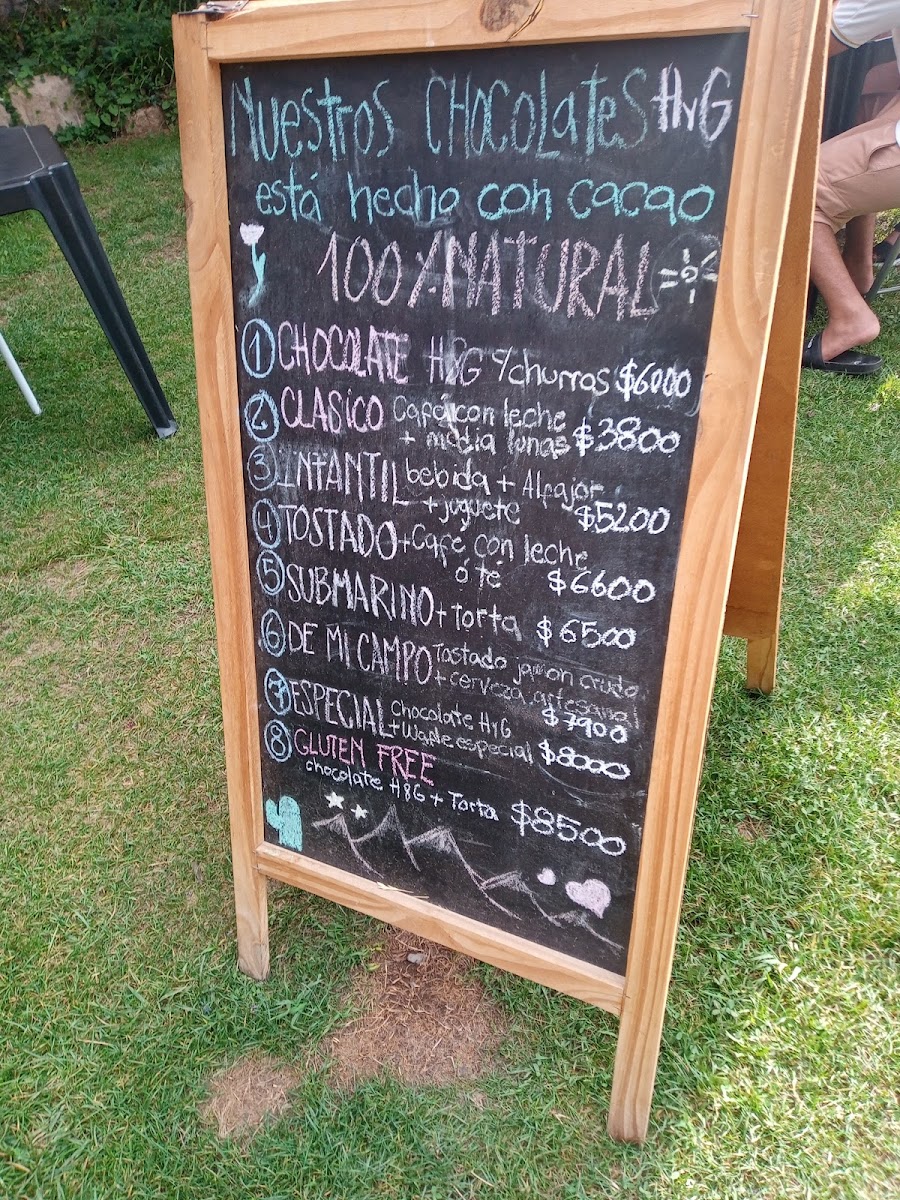 Nuestros CHOCOLATES HyG
está hecho con cacao
100% NATURAL
1 CHOCOLATE HyG c/churros $6000
2 CLASICO Café con leche
+ media lunas $3800
3 INFANTIL bebida + Alfajor
+ juguete $5200
4 TOSTADO + Cafe con leche
ó té $6600
5 SUBMARINO + torta $6500
6 DE MI CAMPO Tostado jamon crudo
+ cerveza artesanal
$7900
7 ESPECIAL Chocolate HyG
+ Wafle especial $8000
8 GLUTEN FREE
chocolate H&G + Torta $8500